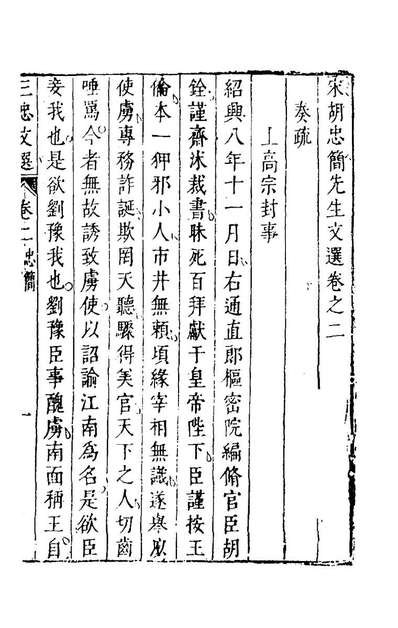 宋胡忠簡先生文選卷之二
奏疏
上高宗封事
紹興八年十一月日右通直郎樞密院編脩官臣胡
銓謹齋沐裁書昧死百拜獻于皇帝陛下臣謹按王
倫本一狎邪小人市井無賴頃緣宰相無識遂舉以
使虜專務詐誕欺罔天聽驟得美官天下之人切齒
唾罵今者無故誘致虜使以詔諭江南為名是欲臣
妾我也是欲劉豫我也劉豫臣事醜虜南面稱王自
三忠文選 卷二 忠簡 一